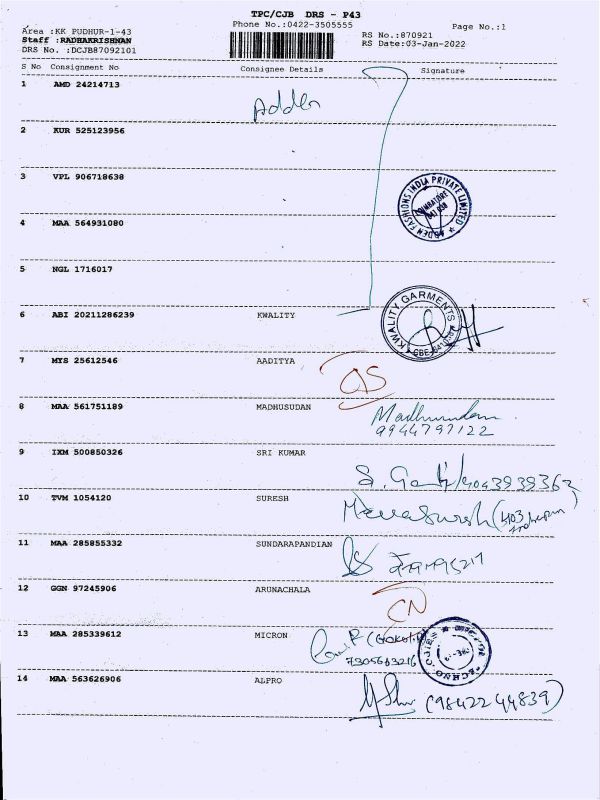 TPC/CJB DRS - P43
Area :KK PUDHUR-1-43
Phone No.:0422-3505555
Page No.:1
Staff :RADHAKRISHNAN
RS No.:870921
DRS No. :DCJB87092101
RS Date:03-Jan-2022
S No Consignment No Consignee Details Signature
1 AMD 24214713
2 KUR 525123956
3 VPL 906718638
FASHIONS INDIA PRIVATE LIMITED
COIMBATORE
4 MAA 564931080
5 NGL 1716017
6 ABI 20211286239 KWALITY
KWALITY GARMENTS
7 MYS 25612546 AADITYA
8 MAA 561751189 MADHUSUDAN
Madhusudan
9944797122
9 IXM 500850326 SRI KUMAR
10 TVM 1054120 SURESH
11 MAA 285855332 SUNDARAPANDIAN
12 GGN 97245906 ARUNACHALA
CN
13 MAA 285339612 MICRON
7305643216
14 MAA 563626906 ALPRO
(9842244839)